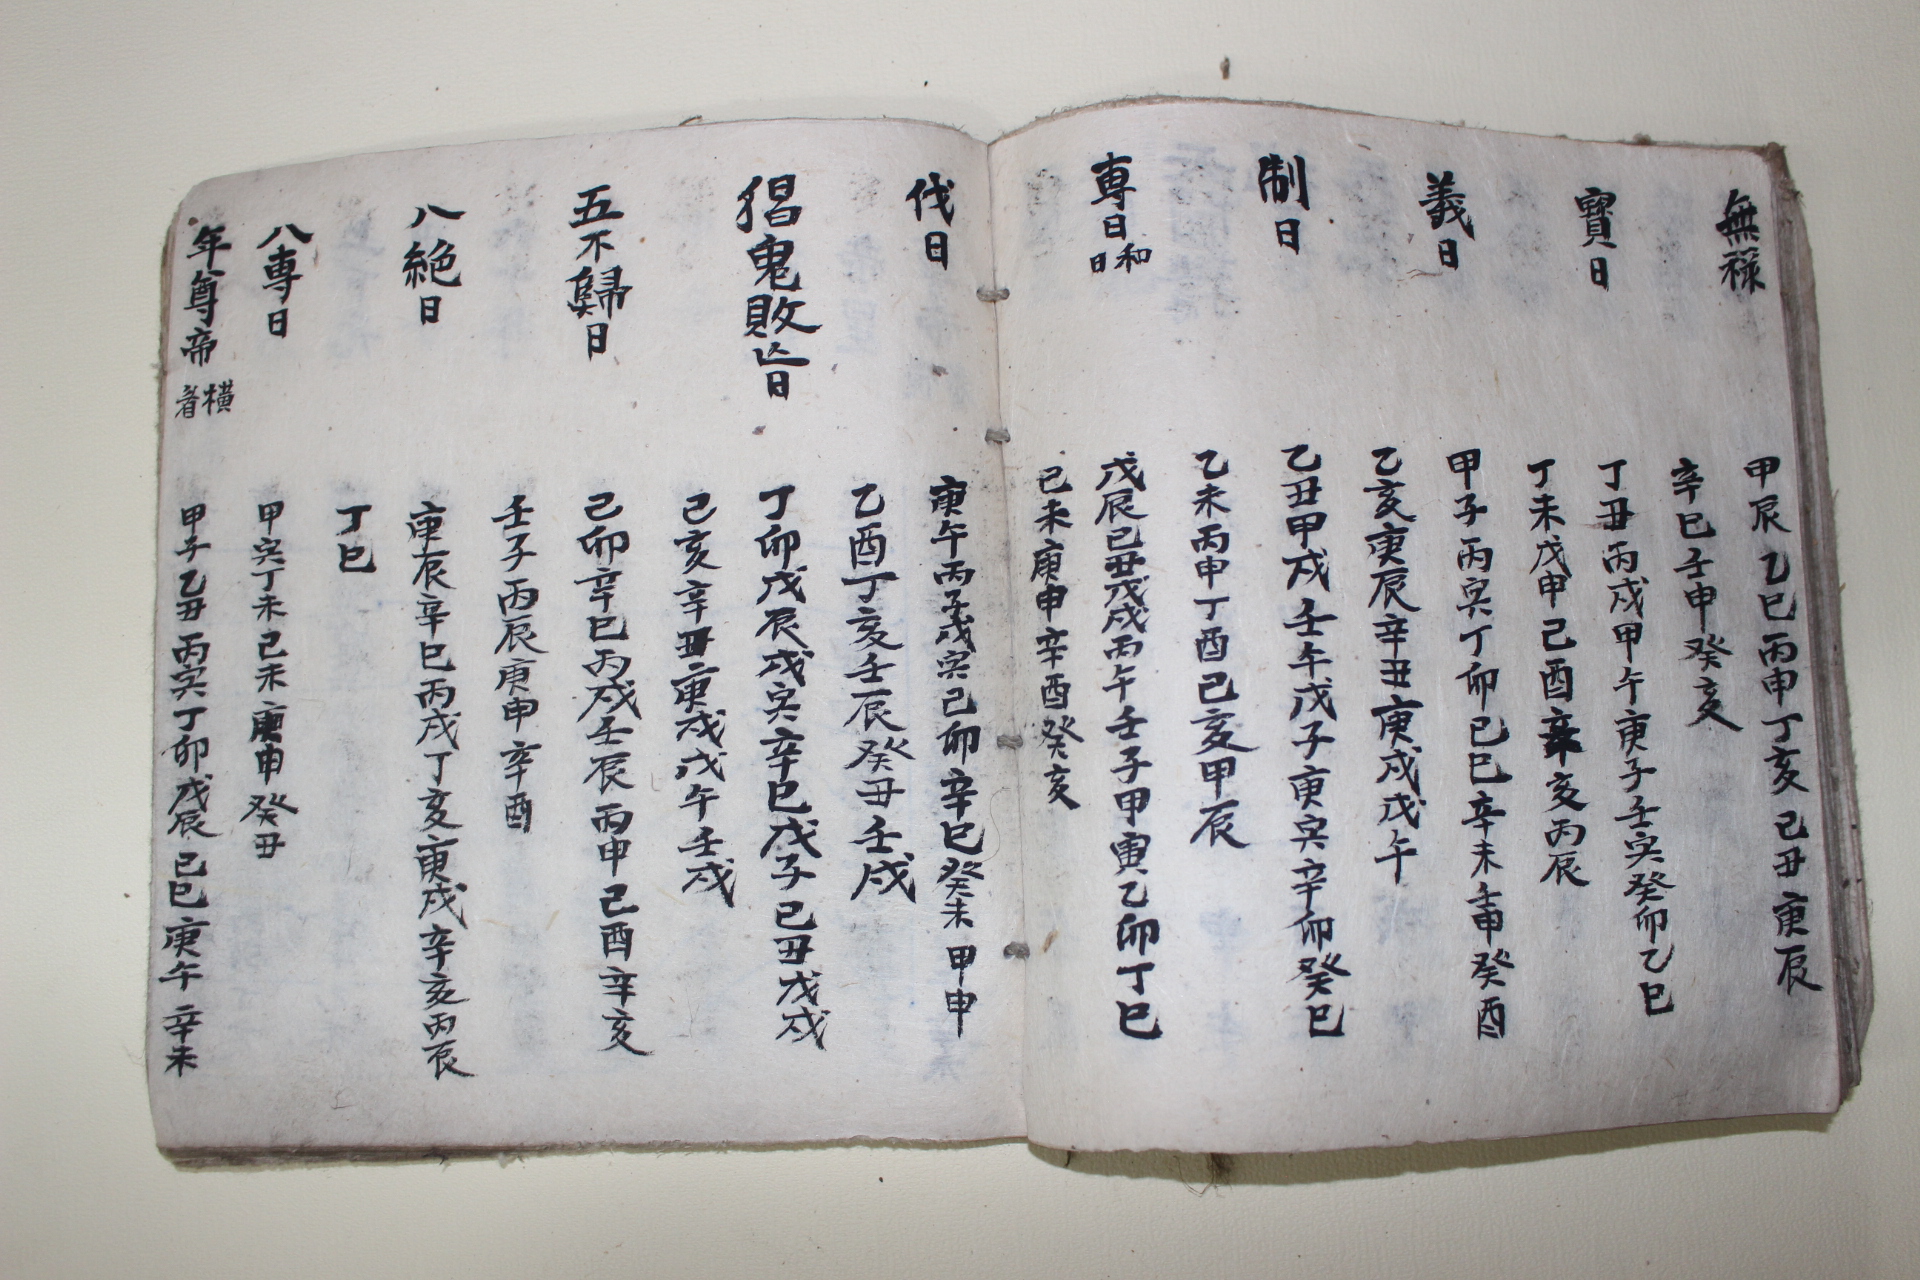 無祿
甲辰乙巳丙申丁亥己丑庚辰
辛巳壬申癸亥
寶日
丁丑丙戌甲午庚子壬寅癸卯乙巳
丁未戊申己酉辛亥丙辰
義日
甲子丙寅丁卯己巳辛未壬申癸酉
乙亥庚辰辛丑庚戌戊午
制日
乙丑甲戌壬午戊子庚寅辛卯癸巳
乙未丙申丁酉己亥甲辰
專日和日
戊辰己丑戊戌丙午壬子甲寅乙卯丁巳
己未庚申辛酉癸亥
伐日
庚午丙子戊寅己卯辛巳癸未甲申
乙酉丁亥壬辰癸丑壬戌
猖鬼敗亡日
丁卯戊辰戊寅辛巳戊子己丑戊戌
己亥辛丑庚戌戊午壬戌
五不歸日
己卯辛巳丙戌壬辰丙申己酉辛亥
壬子丙辰庚申辛酉
八絶日
庚辰辛巳丙戌丁亥庚戌辛亥丙辰
丁巳
八專日
甲寅丁未己未庚申癸丑
年尊帝橫者
甲子乙丑丙寅丁卯戊辰己巳庚午辛未